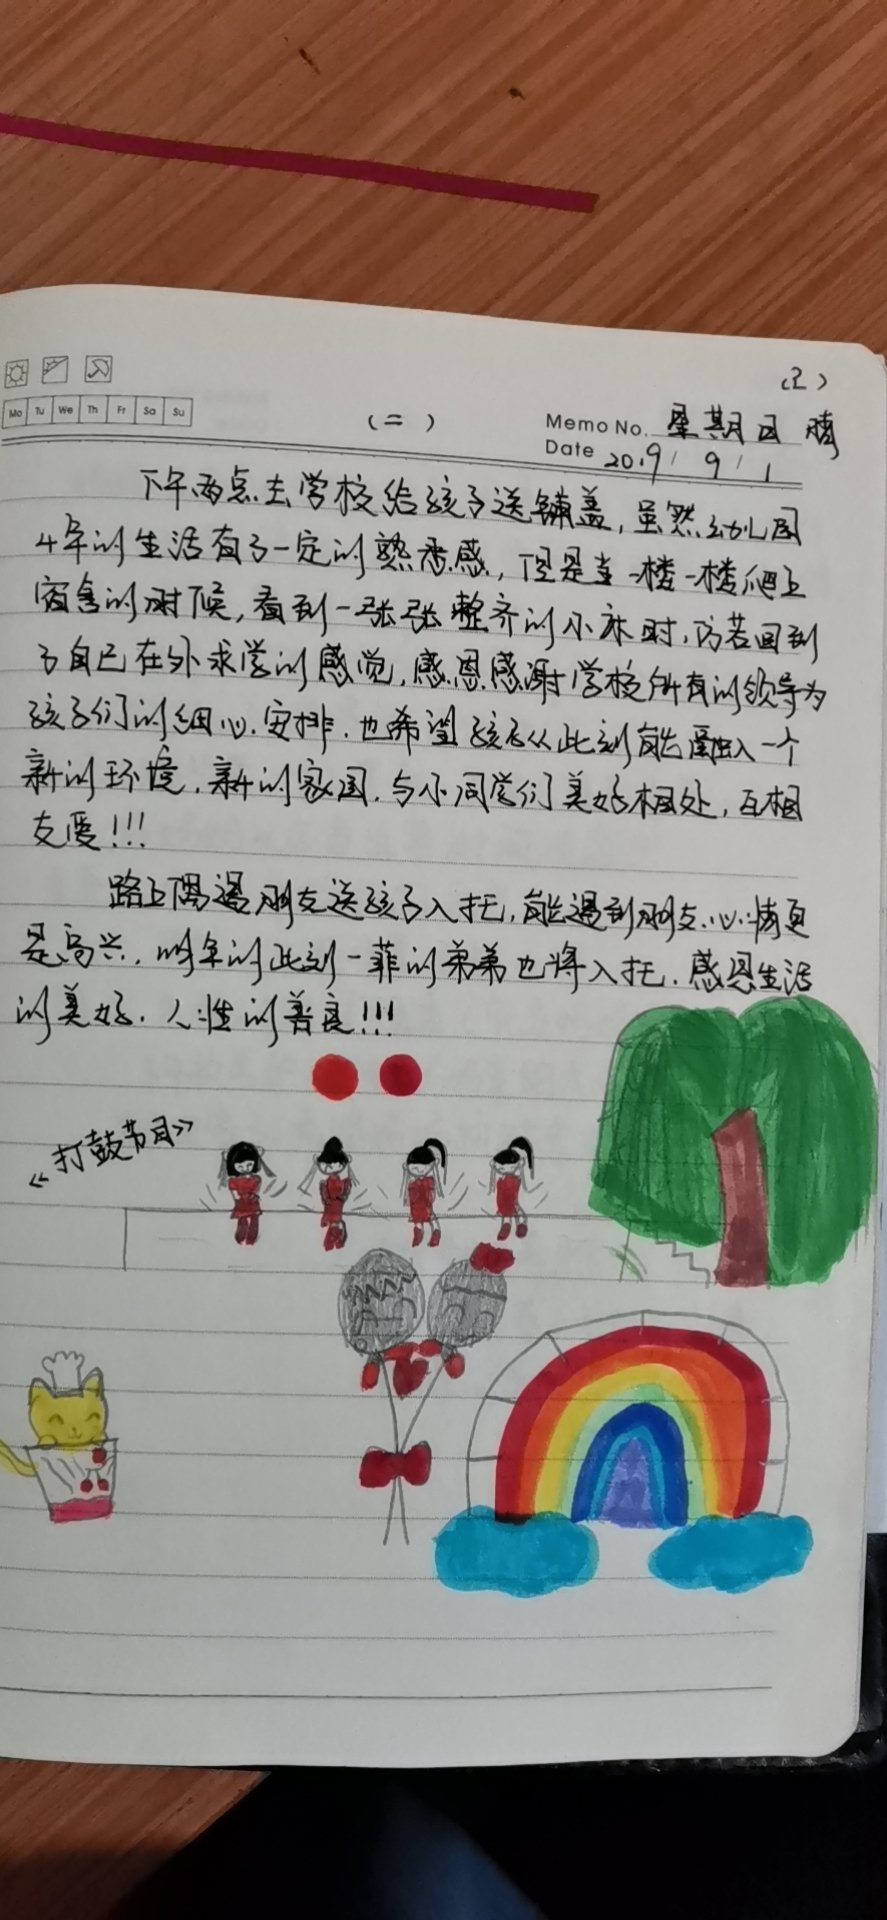 (2)
Mo Tu We Th Fr Sa Su
(二)
Memo No. 星期日 晴
Date 2019/9/1
下午两点去学校给孩子送铺盖,虽然幼儿园
4年的生活有了一定的熟悉感,但是当一楼一楼爬上
宿舍的时候,看到一张张整齐的小床时,仿若回到
了自己在外求学的感觉,感恩感谢学校所有的领导为
孩子们的细心安排,也希望孩子从此刻能融入一个
新的环境,新的家园,与小同学们美好相处,互相
友爱!!!
路上偶遇朋友送孩子入托,能遇到朋友心情更
是高兴,明年的此刻一菲的弟弟也将入托,感恩生活
的美好,人性的善良!!!
《打鼓节目》